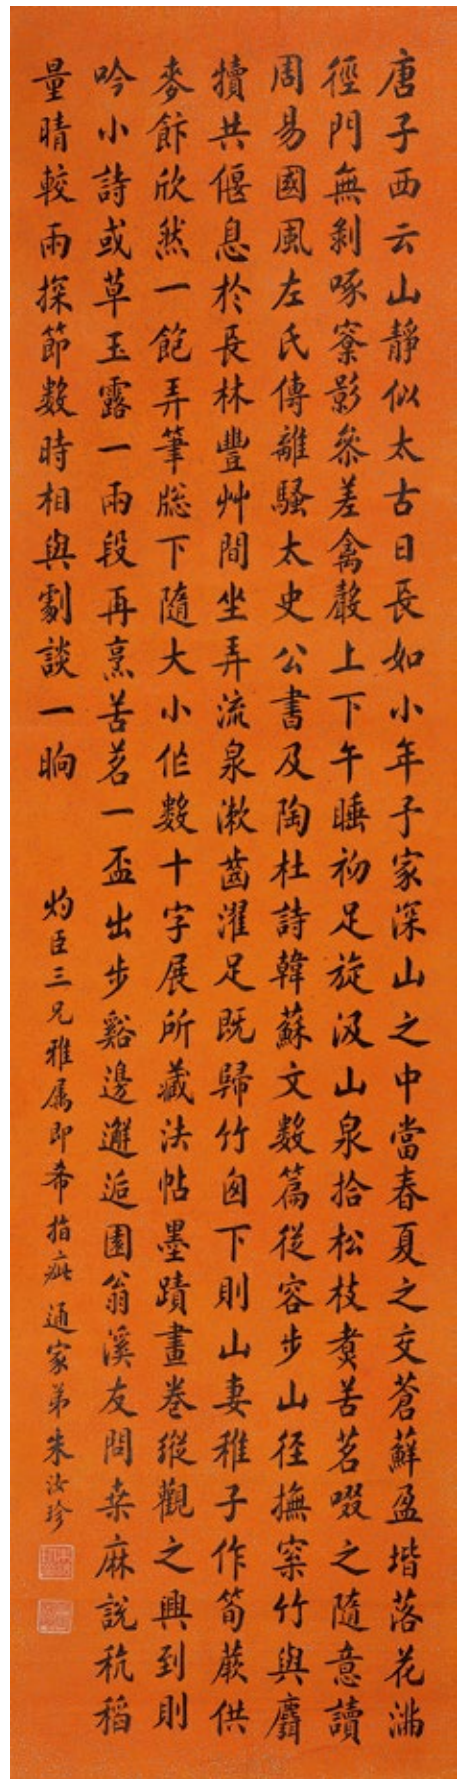 唐子西云山靜似太古日長如小年子家深山之中當春夏之交蒼蘚盈堦落花滿
徑門無剝啄寮影叅差禽聲上下午睡初足旋汲山泉拾松枝煑苦茗啜之隨意讀
周易國風左氏傳離騷太史公書及陶杜詩韓蘇文數篇從容步山徑撫窠竹與麛
犢共偃息於長林豐艸間坐弄流泉漱齒濯足既歸竹囱下則山妻稚子作筍蕨供
麥飰欣然一飽弄筆牎下隨大小作數十字展所藏法帖墨蹟畫卷縱觀之興到則
吟小詩或草玉露一兩段再烹苦茗一盃出步谿邊邂逅園翁溪友問桒麻說秔稻
量晴較雨探節數時相與劇談一晌
灼臣三兄雅属即希指疵 通家弟朱汝珍